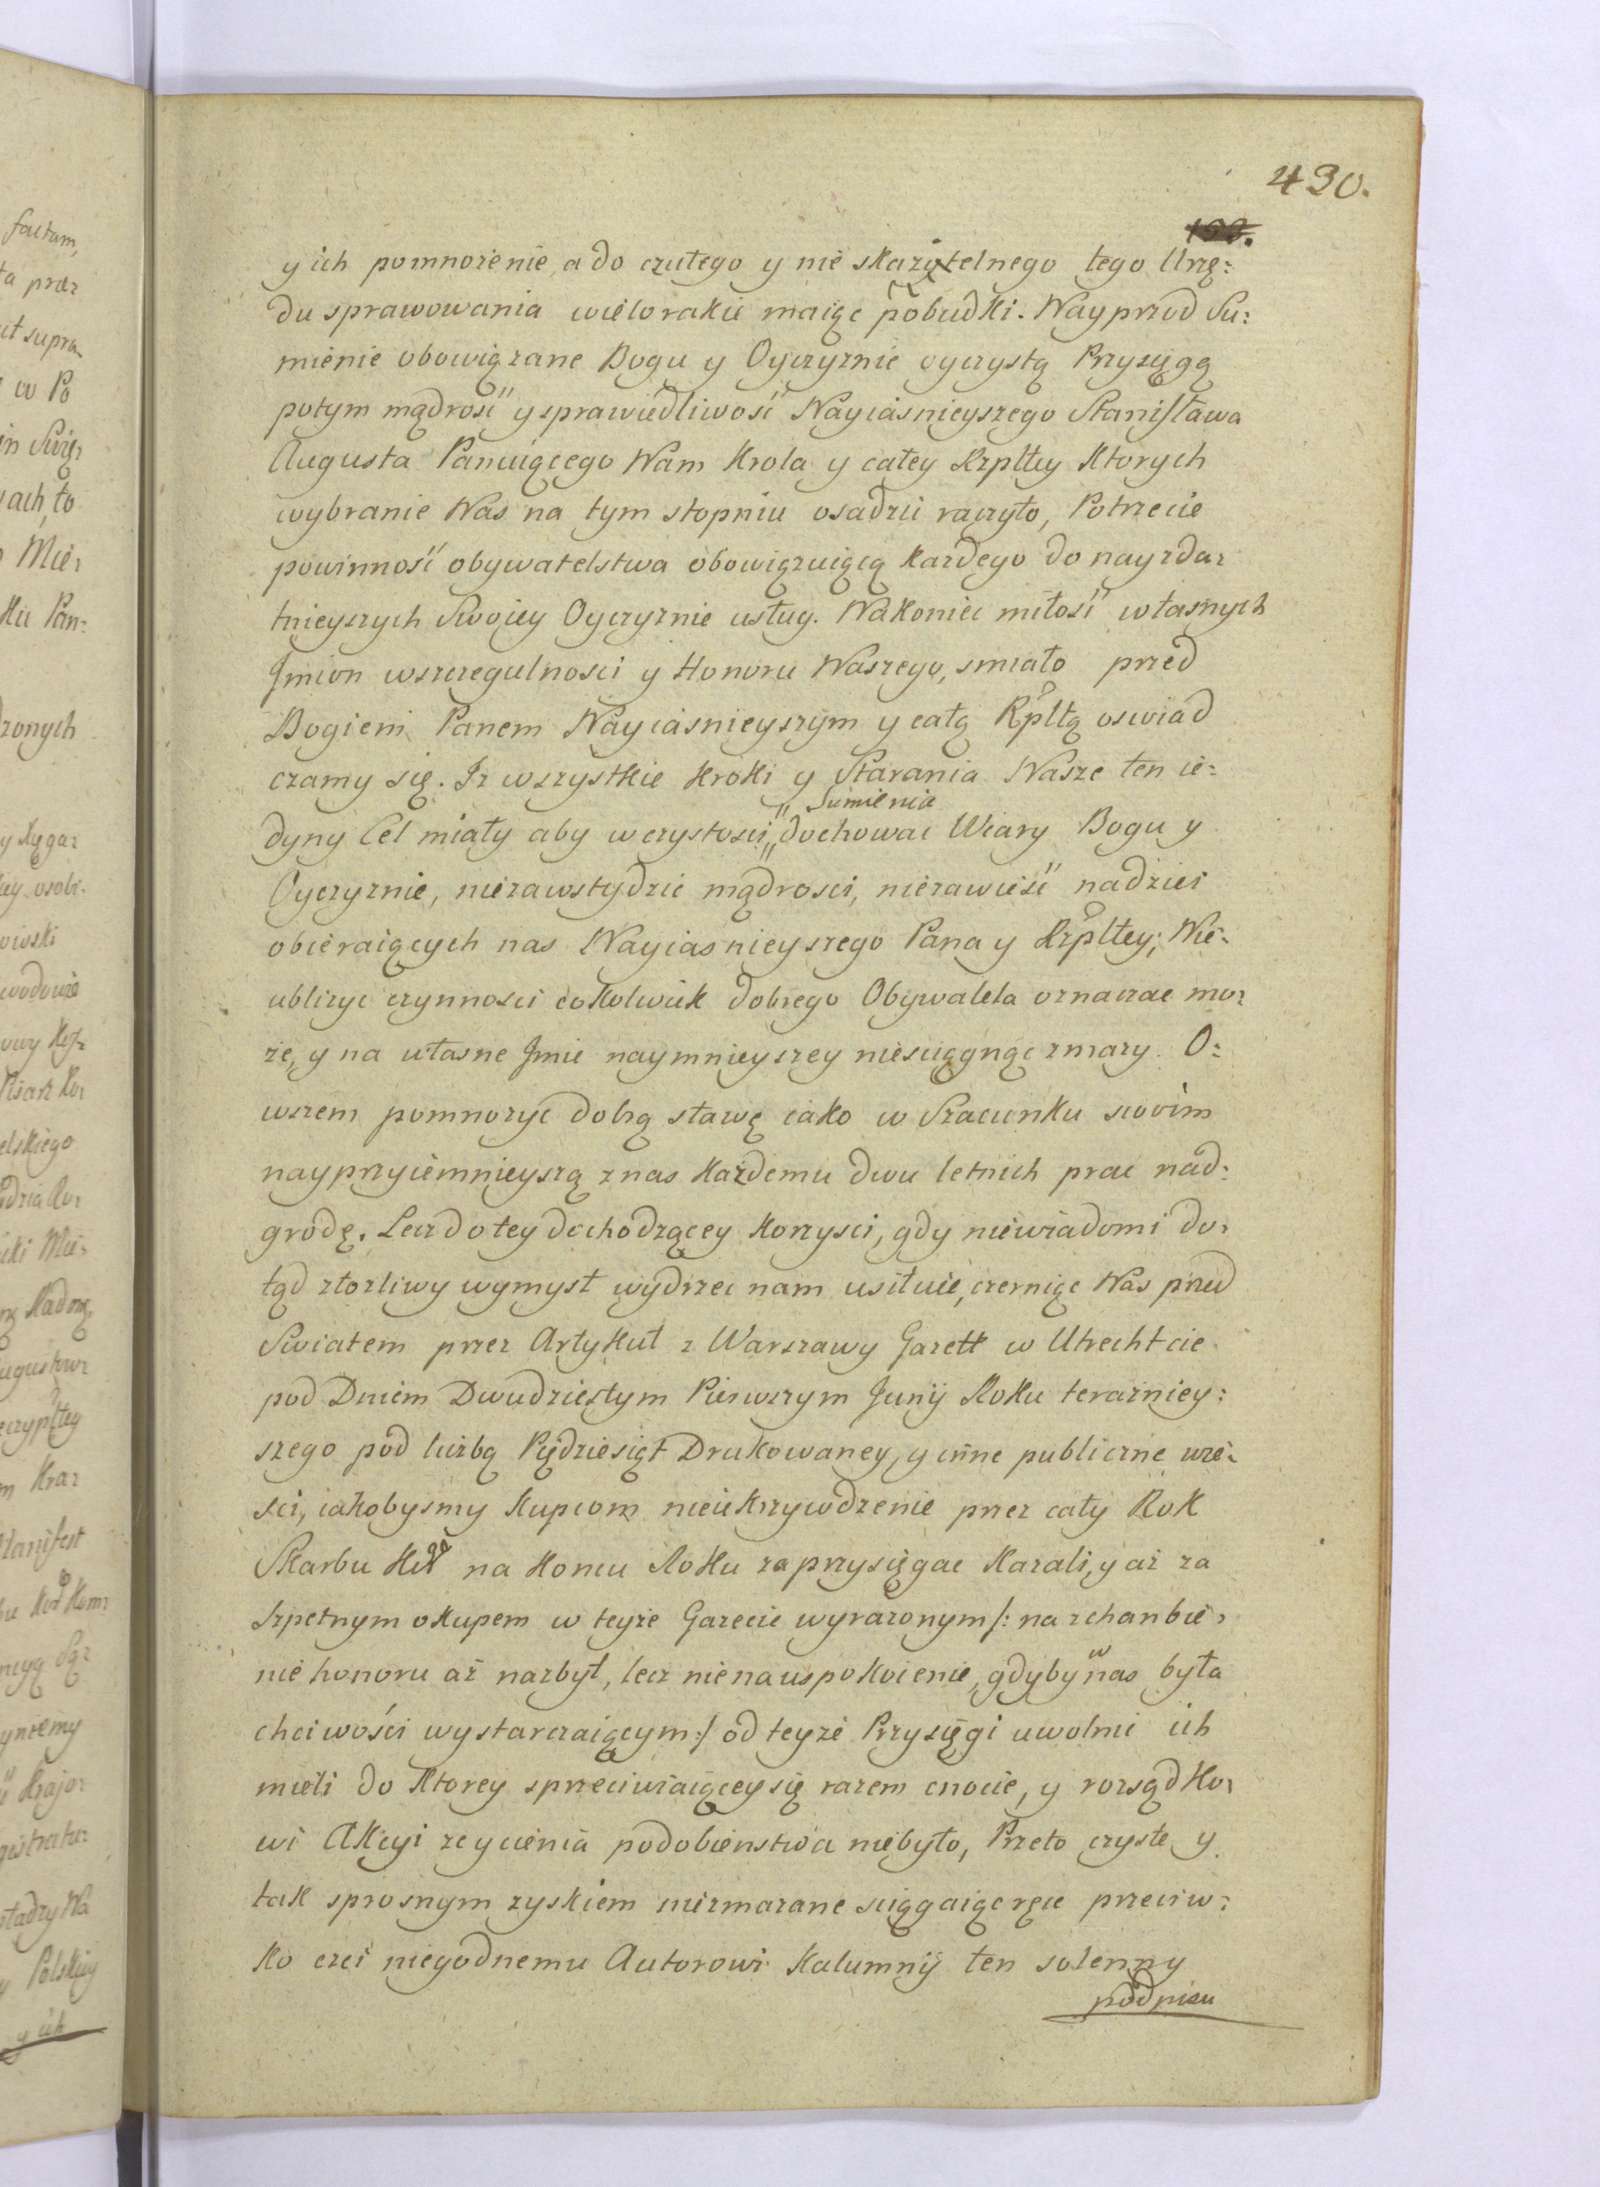 430.
y ich pomnożenie, a do czułego y nie skazitelnego tego Urzę:
du sprawowania wielorakie maiąc pobudki. Nayprzod Su:
mienie obowiązane Bogu y Oyczyznie oyczystą Przysięgą
potym mądrość y sprawiedliwość Nayiasnieyszego Stanisława
Augusta Panuiącego Nam Krola y całey Rzpltey Ktorych
wybranie Nas na tym stopniu osadzić raczyło, Potrzecie
powinność obywatelstwa obowiązuiącą kazdego do nayzda:
tnieyszych Swoiey Oyczyznie usług. Nakoniec miłość własnych
Jmion wszczegulnosci y Honoru Naszego, smiało przed
Bogiem Panem Nayiasnieyszym y całą Rpltą oswiad
czamy się. Iz wszystkie kroki y Starania Nasze ten ie:
dyny Cel miały aby wczystosci Sumienia dochować Wiary Bogu y
Oyczyznie, niezawstydzić mądrosci, niezawieść nadziei
obieraiących nas Nayiasnieyszego Pana y Rzpltey; Nie:
ubliżyc czynnosci cokolwiek dobrego Obywatela oznaczac mo:
że, y na własne Jmie naymnieyszey niesciągnąc zmazy. O:
wszem pomnozyc dobrą sławę iako w Szacunku swoim
nayprzyiemnieyszą znas każdemu dwu letnich prac nad:
grodę. Lecz do tey dochodzącey korzysci, gdy niewiadomi do:
tąd złozliwy wymysł wydrzec nam usiłuie, czerniąc Nas przed
Swiatem przez Artykuł z Warszawy Gazett w Utrechtcie
pod Dniem Dwudziestym Pierwszym Junij Roku terazniey:
szego pod liczbą Pędziesiąt Drukowaney, y inne publiczne wie:
sci, iakobysmy kupcom nieukrzywdzenie przez cały Rok
Skarbu na koncu Roku zaprzysięgac kazali, y aż za
Szpetnym okupem w teyże Gazecie wyrazonym /: na zchanbie:
nie honoru aż nazbyt, lecz nie na uspokoienie, gdyby w nas była
chciwości wystarczaiącym :/ od teyże Przysięgi uwolnic ich
mieli do Ktorey sprzeciwiaiącey się razem cnocie, y rozsądko:
wi Akcyi zcycienia podobienstwa niebyło, Przeto czyste y
tak sprosnym zyskiem niezmazane sciągaiąc ręce przeciw:
ko czci niegodnemu Autorowi kalumnij ten solenny
podpisu